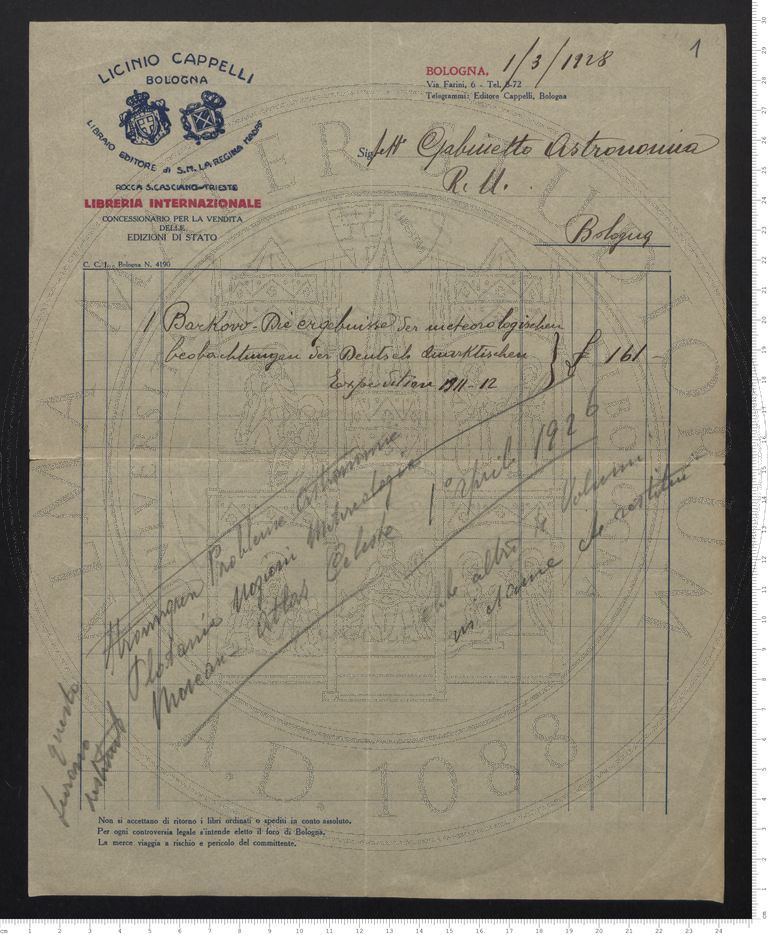 1
LICINIO CAPPELLI
BOLOGNA
LIBRAIO EDITORE di S.M. LA REGINA MADRE
ROCCA S. CASCIANO-TRIESTE
LIBRERIA INTERNAZIONALE
CONCESSIONARIO PER LA VENDITA
DELLE
EDIZIONI DI STATO
C. C. I. - Bologna N. 4190
BOLOGNA, 1/3/1928
Via Farini, 6 - Tel. 5-72
Telegrammi: Editore Cappelli, Bologna
Gabinetto Astronomia
R. U.
Bologna
1 Barkow - Die ergebnisse der meteorologischen
beobachtungen der Deutsch Antarktischen
Expedition 1911-12 } £ 161 -
Probleme Astronomie
Nozioni Meteorologia
Atlas Celeste 1° aprile 1926
ebbe altri 4 Volumi
Questo
Non si accettano di ritorno i libri ordinati o spediti in conto assoluto.
Per ogni controversia legale s'intende eletto il foro di Bologna.
La merce viaggia a rischio e pericolo del committente.
A.D. 1088